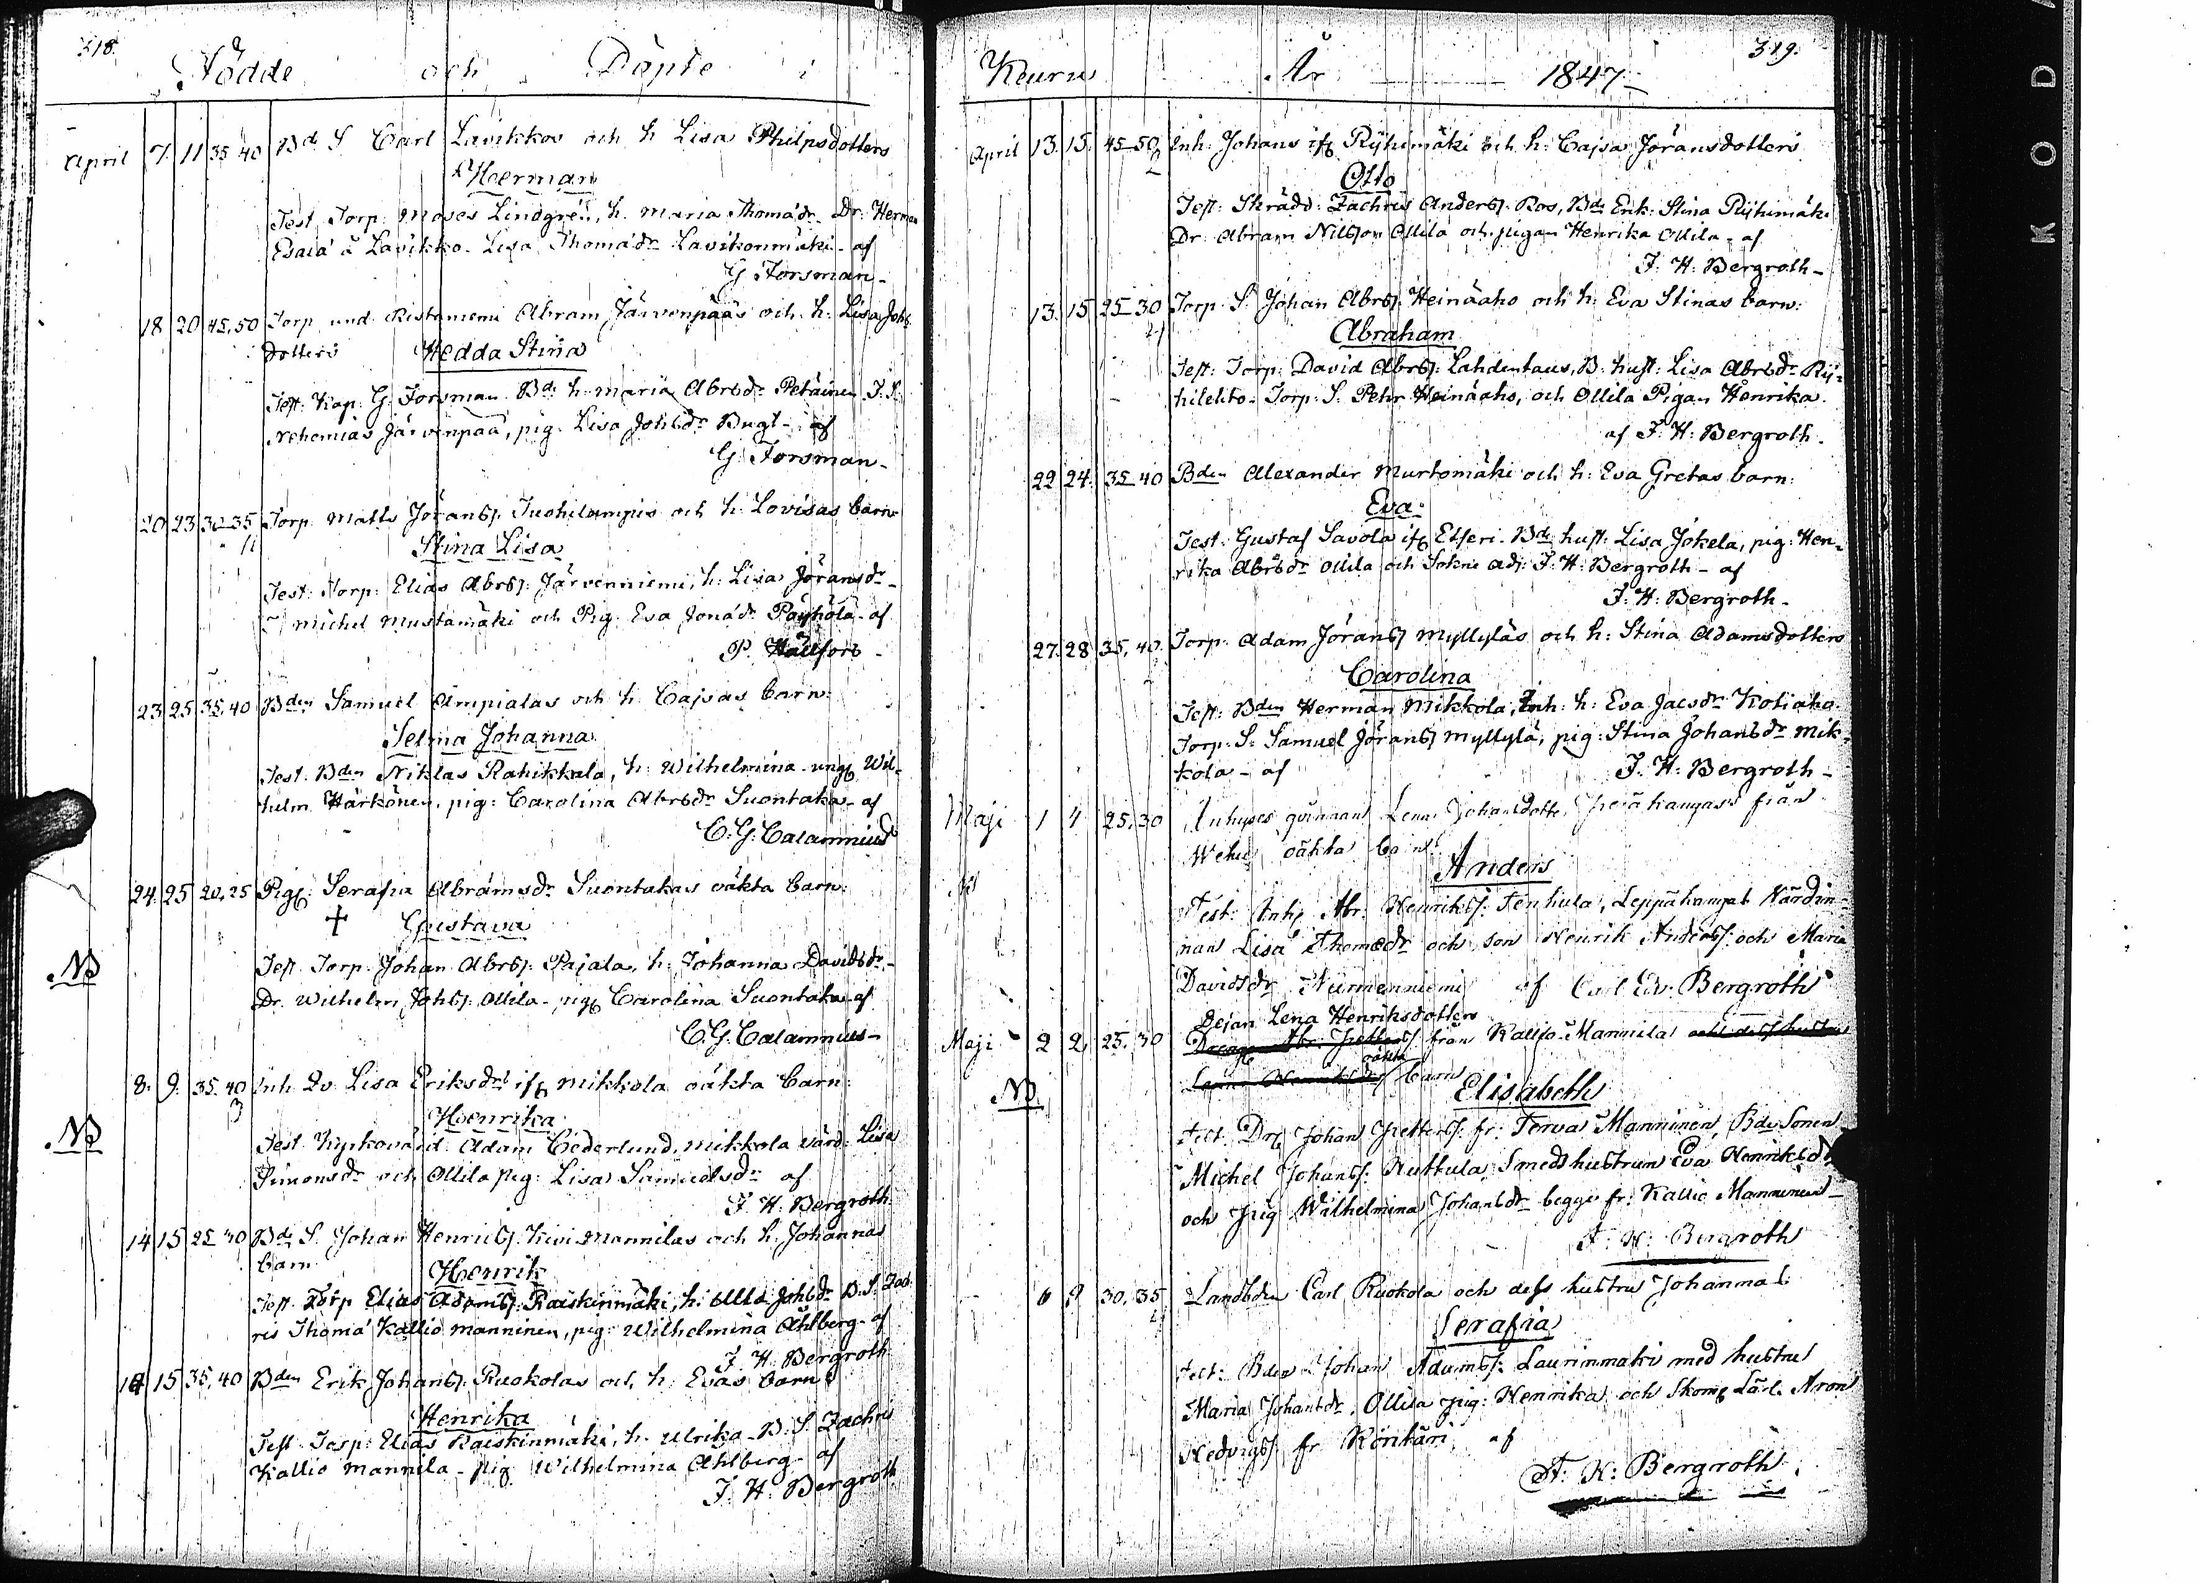 318.
Födde och Döpte i
April 7. 11 35 40 Bd. S. Carl Lavikkos och h. Lisa Philpsdotters
Herman
Test. Torp. Moses Lindgrén, h. Maria Thomædr. Dr. Herman
Esaiæ Lavikko. Lisa Thomædr Lavikonmäki - af
G Forsman -
18 20 45,50 Torp. und. Ristaniemi Abram Järvenpääs och h. Lisa Johs
dotters Hedda Stina
Test. Kap. G. Forsman. Bd: h. Maria Abrsdr Petäinen T. S.
Nehemias Järvenpää, pig. Lisa Johsdr Bugt - af
G. Forsman -
20. 23 30-35 Torp. Matts Jöransss. Suohilampis och h. Lovisas barn
Stina Lisa
Test. Torp. Elias Abrss. Järvenniemi, h. Lisa Jöransdr -
Michel Mustamäki och Pig. Eva Jonædr Pöyhölä - af
P. Hällfors -
23. 25 35,40 Bden Samuel Ampialas och h. Cajsas barn:
Selma Johanna
Test. Bden Niklas Rahikkala, h: Wilhelmina - ung. Wil-
helm Härkönen, pig: Carolina Abrsdr Suontaka - af
C. G. Calamnius
24. 25 20,25 Pig. Serafia Abramsdr Suontakas oäkta barn:
† Gustava
NB
Test. Torp. Johan Abrss. Pajala, h. Johanna Davidsdr -
Dr. Wilhelm Johss. Ollila - pig. Carolina Suontaka - af
C. G. Calamnius -
8. 9. 35. 40 Inh. Qv. Lisa Eriksdr ifr. Mikkola oäkta barn:
3
NB Henrika
Test. Kyrkovärd. Adam Cederlund, Mikkola värd. Lisa
Simonsdr och Ollila pig: Lisa Samuelsdr af
F. H. Bergroth
14 15 25 30 Bd. S. Johan Henrics. Kivi Mannilas och h. Johannas
barn Henrik
Test. Torp Elias Adamss. Raiskinmäki, h. Ulla Johsdr B. S. Zach
ris Thomæ Kallio Manninen, pig: Wilhelmina Ahlberg - af
F. H. Bergroth
14 15 35,40 Bden Erik Johanss. Ruokolas och h. Evas barn
Henrika
Test. Torp. Elias Raiskinmäki, h. Ulrika. B. S. Zachris
Kallio Mannila - pig. Wilhelmina Ahlberg - af
F. H. Bergroth
319.
Keuru År 1847
April 13. 15. 45-50 Inh. Johans ifr. Ryhimäki och h. Cajsa Jöransdotters
Otto
Test. Skrädd. Zachris Anderss. Ros, Bds Enk. Stina Ryhimäki
Dr. Abram Nilsson Ollila och pigan Henrika Ollila - af
F. H. Bergroth -
13. 15 25-30 Torp. S. Johan Abrss. Heinäaho och h. Eva Stinas barn:
Abraham
Test. Torp. David Abrss. Lahdentaus, B. hust. Lisa Abrsdr Ry-
hilehto - Torp. S. Pehr Heinäaho, och Ollila Pigan Henrika.
af F. H. Bergroth.
22 24. 35-40 Bden Alexander Murtomäki och h: Eva Gretas barn:
Eva
Test. Gustaf Savola ifr. Etseri. Bds hust. Lisa Jokela, pig: Hen-
rika Abrsdr Ollila och Sokne adj: F. H. Bergroth - af
F. H. Bergroth -
27. 28 35,40. Torp. Adam Jöranss Myllyläs och h: Stina Adamsdotters
Carolina
Test. Bden Herman Mikkola, Inh. h: Eva Jacsdr Kotiaho.
Torp. S: Samuel Jöranss Myllylä, pig: Stina Johansdr Mik-
kola - af F. H: Bergroth -
Maji 1 4 25,30 Inhyses qvinnan Lena Johansdotter från
oäkta barn
Anders
Test. Inh. Abr. Henrikss. Tenhula, Leppäkangas Värdin-
nan Lisa Thomædr och son Henrik Anderss. och Maria
Davidsdr Nurmenniemi af Carl Edv. Bergroth
Dejan Lena Henriksdotters
Maji 2 2. 25. 30 från Kallio-Mannila
oäkta
barn
NB. Elisabeth
Test. Dr. Johan Petterss. fr. Terva Manninen, Bde Sonen
Michel Johanss. Huttula, Smedshustrun Eva Henriksdr
och Pig. Wilhelmina Johansdr begge fr: Kallio Manninen -
F. H. Bergroth
6 9 30,35 Landbden Carl Ruokola och dess hustru Johannas
Serafia
Test. Bden Johan Adamss. Laurinmäki med hustru
Maria Johansdr. Ollila pig: Henrika och Skom. Lärl. Aron
Hedvigss. fr. Könkäri af
F. H. Bergroth.
KODA